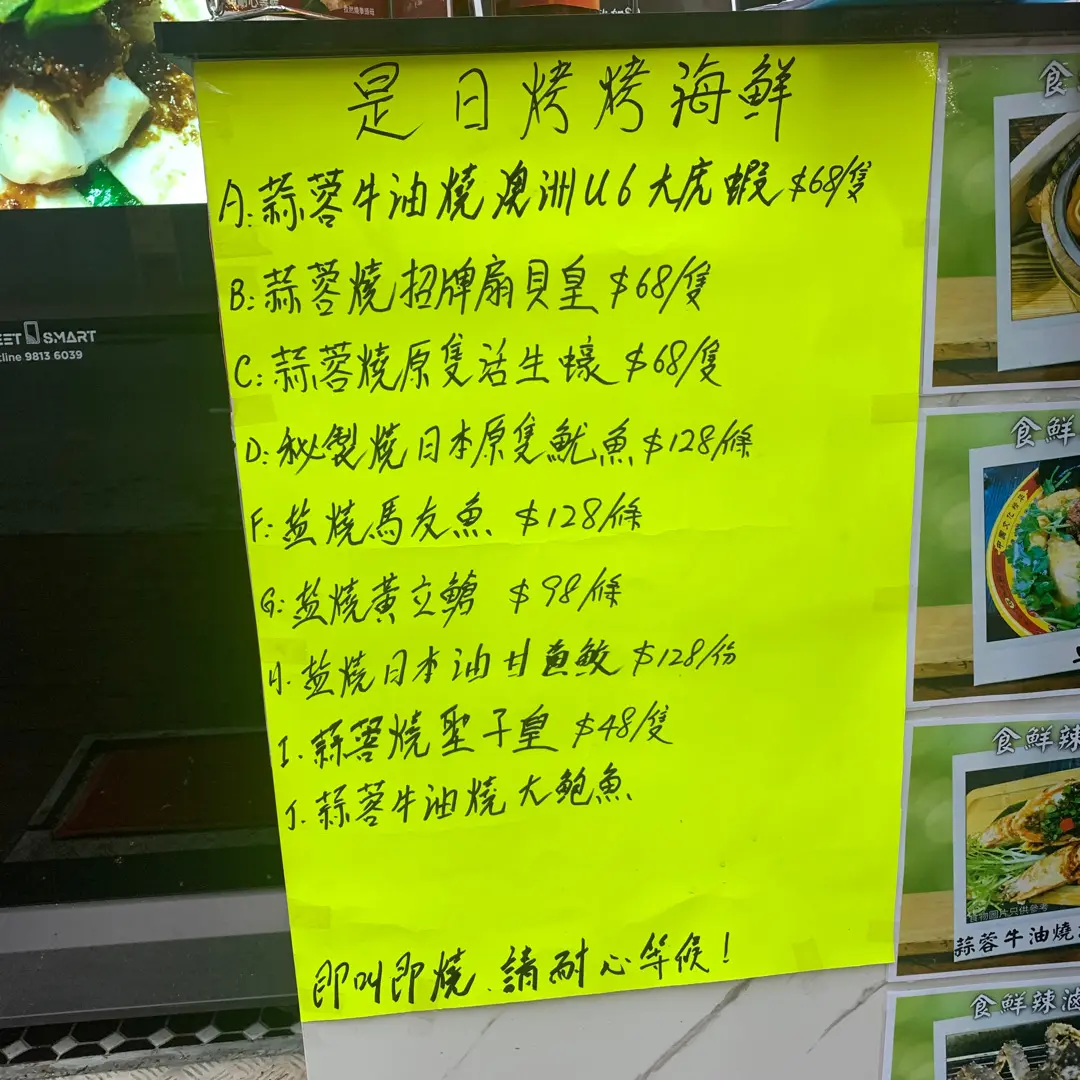 是日烤烤海鮮
A:蒜蓉牛油燒澳洲U6大虎蝦$68/隻
B:蒜蓉燒招牌扇貝皇$68/隻
C:蒜蓉燒原隻活生蠔$68/隻
D:秘製燒日本原隻魷魚$128/條
F:盐燒馬友魚 $128/條
G:盐燒黃立鱠 $98/條
H.盐燒日本油甘魚鮫$128/份
I.蒜蓉燒聖子皇 $48/隻
J.蒜蓉牛油燒大鮑魚
即叫即燒.請耐心等候!
SMART
9813 6039
食
食鮮
食鮮辣
食物圖片只供參考
蒜蓉牛油燒
食鮮辣滷